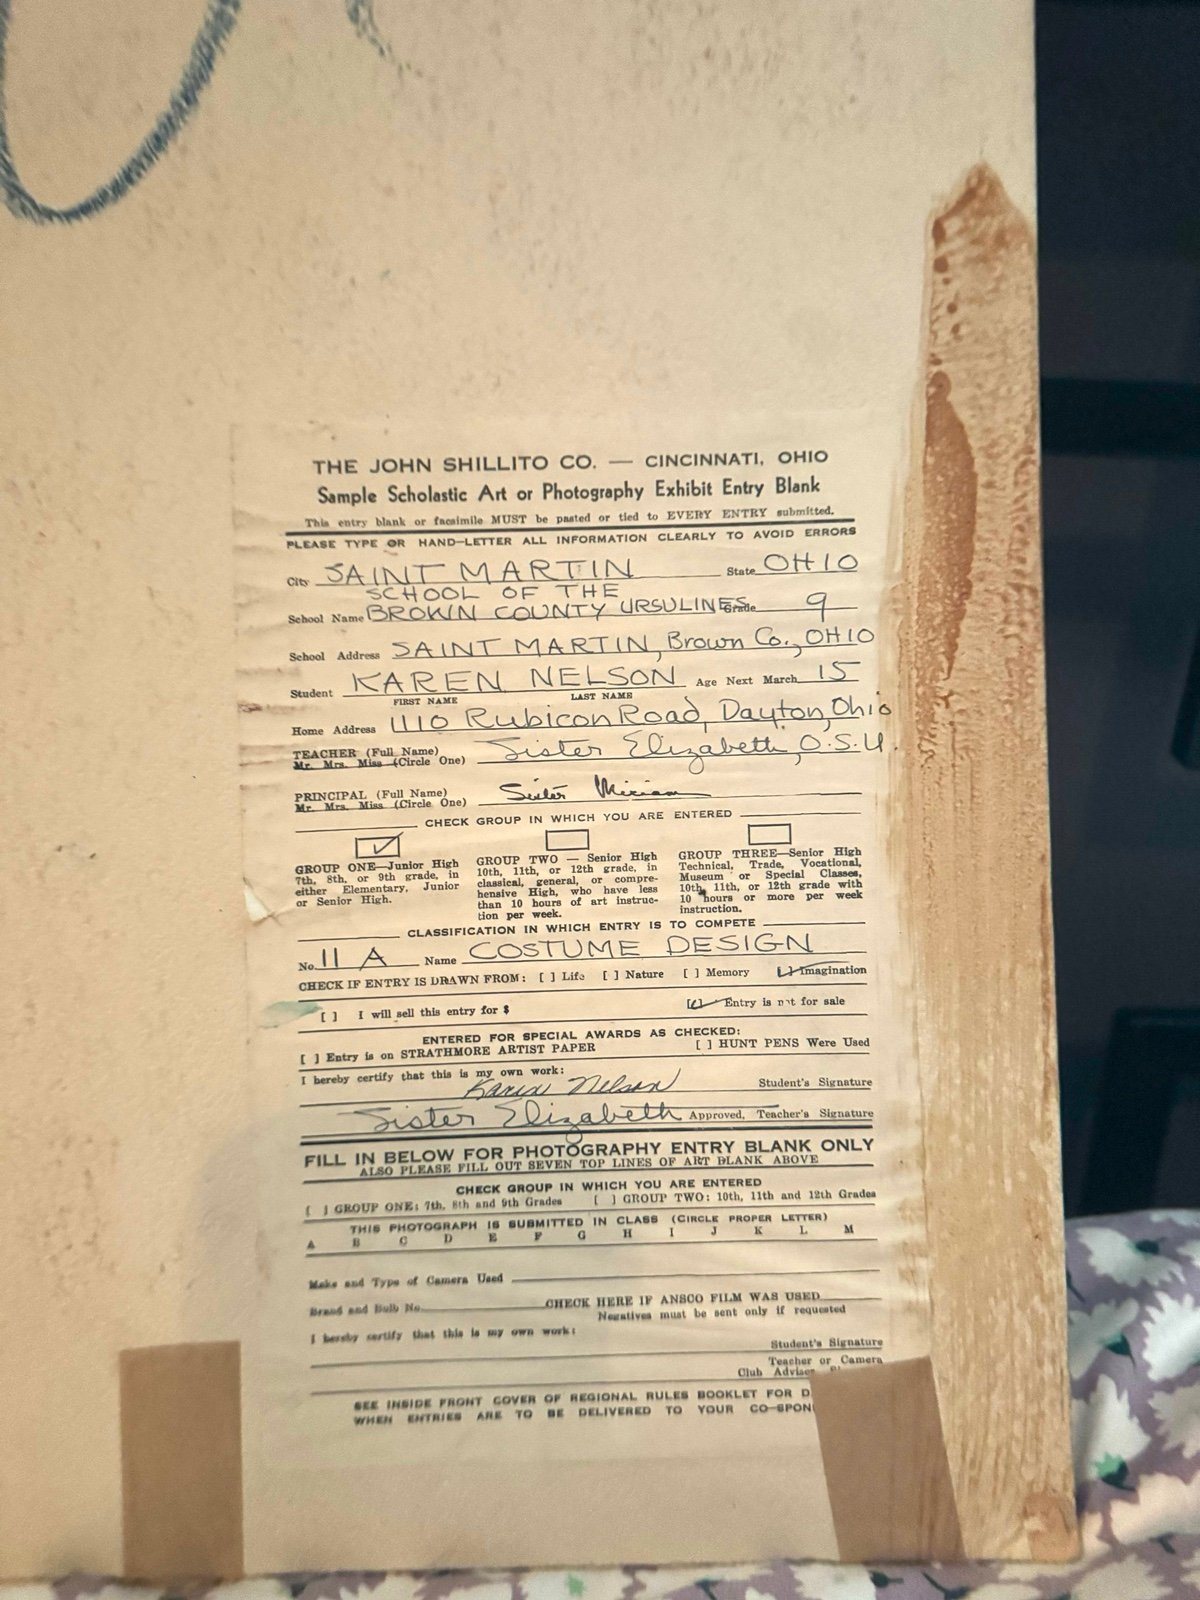 THE JOHN SHILLITO CO. — CINCINNATI, OHIO
Sample Scholastic Art or Photography Exhibit Entry Blank
This entry blank or facsimile MUST be pasted or tied to EVERY ENTRY submitted.
PLEASE TYPE OR HAND-LETTER ALL INFORMATION CLEARLY TO AVOID ERRORS
City SAINT MARTIN State OHIO
SCHOOL OF THE
School Name BROWN COUNTY URSULINES Grade 9
School Address SAINT MARTIN, Brown Co., OHIO
Student KAREN NELSON Age Next March 15
FIRST NAME LAST NAME
Home Address 1110 Rubicon Road, Dayton, Ohio
TEACHER (Full Name)
Mr. Mrs. Miss (Circle One) Sister Elizabeth, O.S.U.
PRINCIPAL (Full Name)
Mr. Mrs. Miss (Circle One) Sister Miriam
CHECK GROUP IN WHICH YOU ARE ENTERED
GROUP ONE—Junior High
7th, 8th, or 9th grade, in
either Elementary, Junior
or Senior High.
GROUP TWO — Senior High
10th, 11th, or 12th grade, in
classical, general, or compre-
hensive High, who have less
than 10 hours of art instruc-
tion per week.
GROUP THREE—Senior High
Technical, Trade, Vocational,
Museum or Special Classes,
10th, 11th, or 12th grade with
10 hours or more per week
instruction.
CLASSIFICATION IN WHICH ENTRY IS TO COMPETE
No. 11 A Name COSTUME DESIGN
CHECK IF ENTRY IS DRAWN FROM: [ ] Life [ ] Nature [ ] Memory [✓] Imagination
[ ] I will sell this entry for $ [✓] Entry is not for sale
ENTERED FOR SPECIAL AWARDS AS CHECKED:
[ ] Entry is on STRATHMORE ARTIST PAPER [ ] HUNT PENS Were Used
I hereby certify that this is my own work:
Karen Nelson Student's Signature
Sister Elizabeth Approved, Teacher's Signature
FILL IN BELOW FOR PHOTOGRAPHY ENTRY BLANK ONLY
ALSO PLEASE FILL OUT SEVEN TOP LINES OF ART BLANK ABOVE
CHECK GROUP IN WHICH YOU ARE ENTERED
[ ] GROUP ONE: 7th, 8th and 9th Grades [ ] GROUP TWO: 10th, 11th and 12th Grades
THIS PHOTOGRAPH IS SUBMITTED IN CLASS (CIRCLE PROPER LETTER)
A B C D E F G H I J K L M
Make and Type of Camera Used
Brand and Bulb No. CHECK HERE IF ANSCO FILM WAS USED
Negatives must be sent only if requested
I hereby certify that this is my own work:
Student's Signature
Teacher or Camera
Club Adviser
SEE INSIDE FRONT COVER OF REGIONAL RULES BOOKLET FOR D
WHEN ENTRIES ARE TO BE DELIVERED TO YOUR CO-SPON